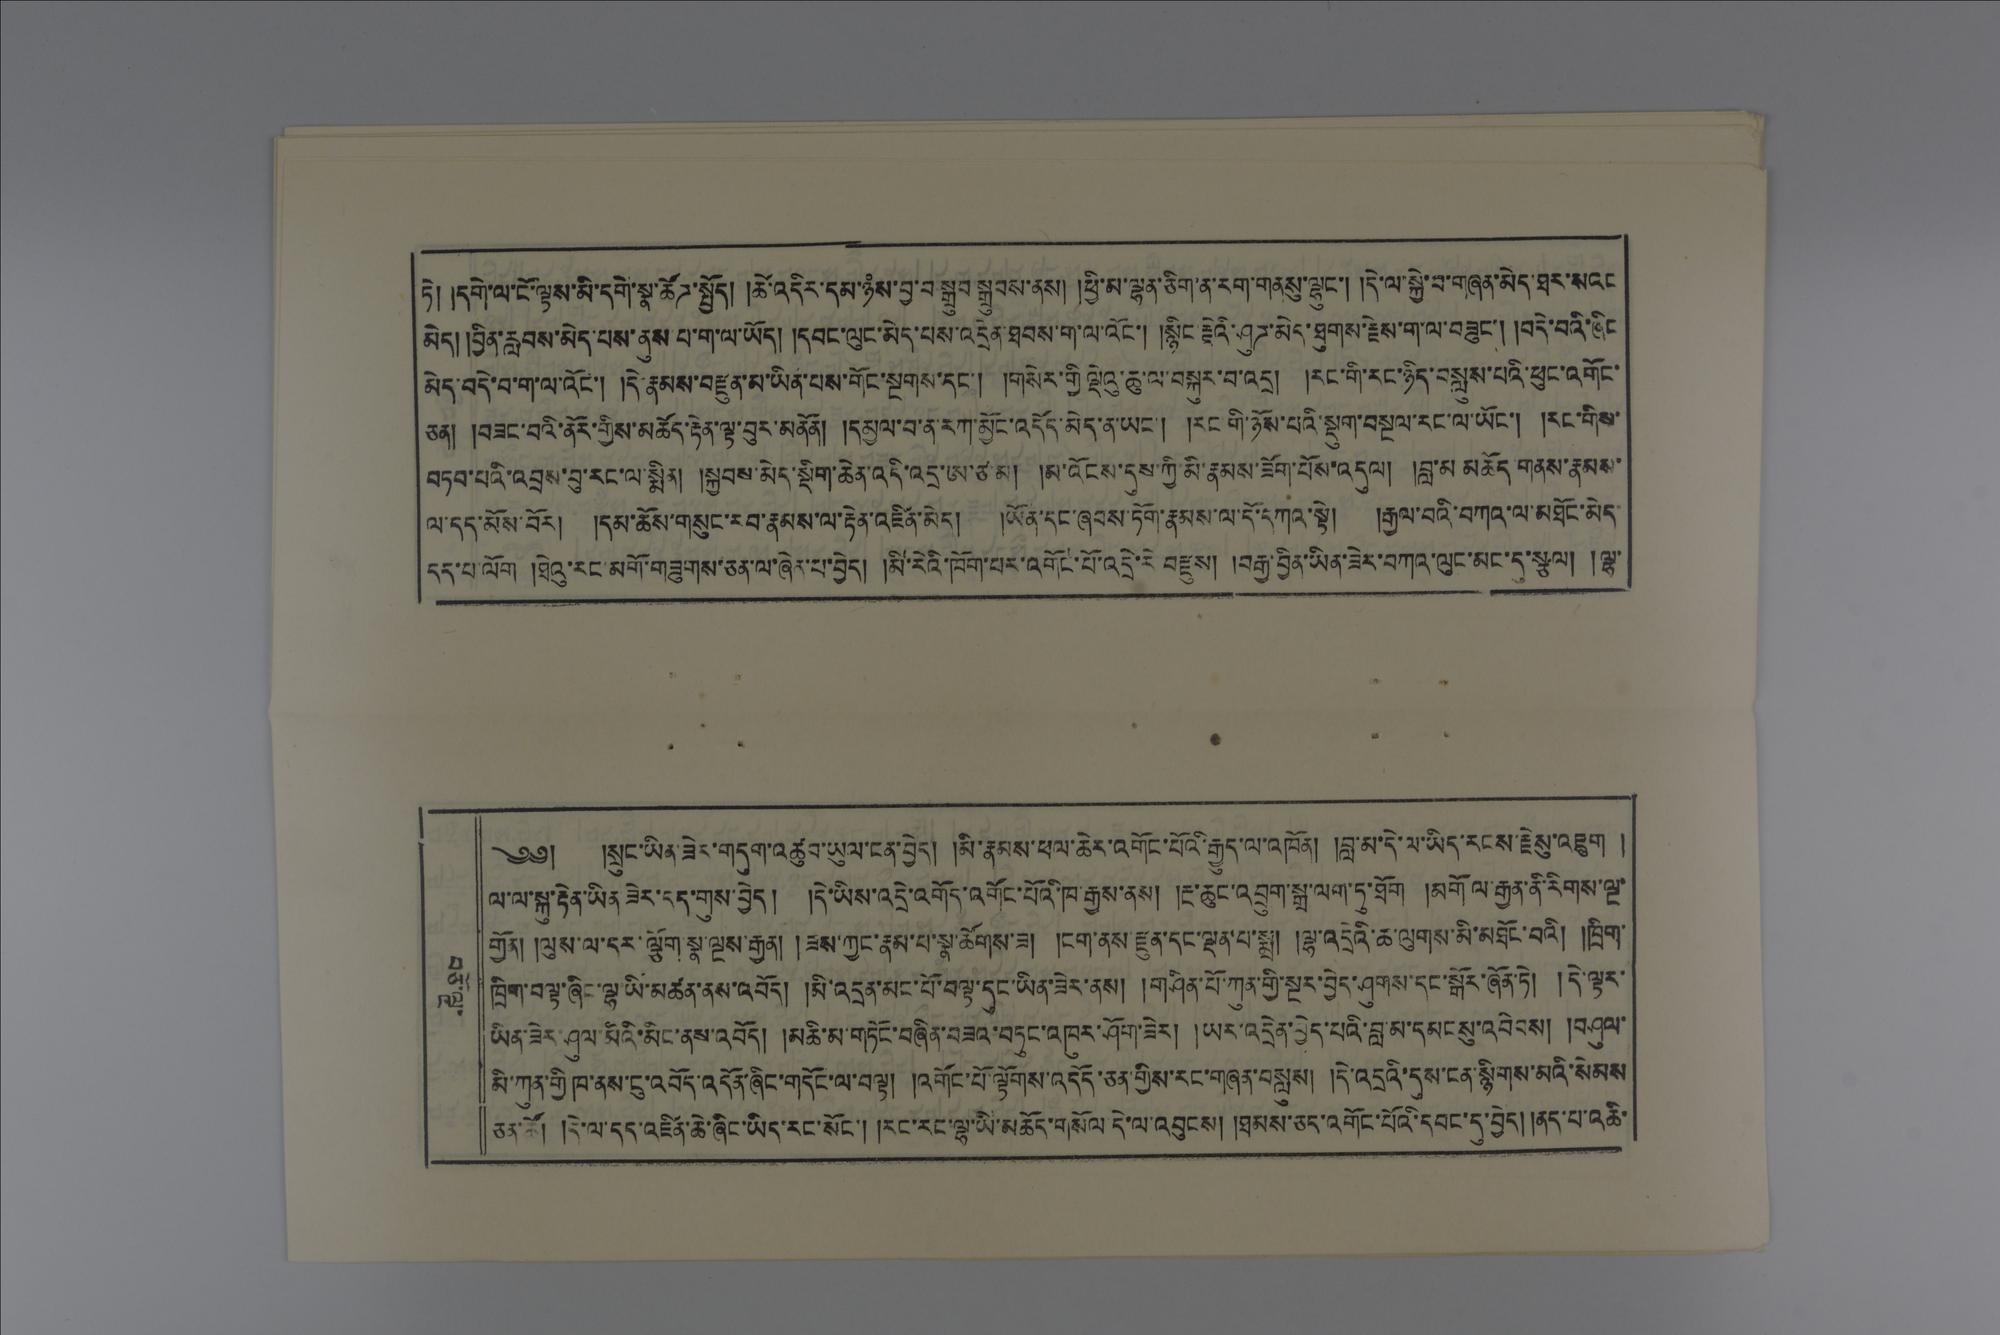 ཏེ། །དགེ་ལ་ངོ་ལྟས་མི་དགེ་སྣ་ཚོཊ་སྤྱོད། །ཚེ་འདིར་དམ་ཉཾས་བྱ་བ་སྒྲུབ་སྒྲུབས་ནས། །ཕྱི་མ་ལྷན་ཅིག་ན་རག་གནསུ་ལྷུང་། །དེ་ལ་སྐྱེ་བ་གཞན་མེད་ཐར་སའང
མེད། །བྱིན་རླབས་མེད་པས་ནུས་པ་ག་ལ་ཡོད། །དབང་ལུང་མེད་པས་འདྲེན་ཐབས་ག་ལ་འོང་། །སྙིང་རྗེའི་ཤུཊ་མེད་ཐུགས་རྗེས་ག་ལ་བཟུང་། །བདེ་བའི་ཞིང
མེད་བདེ་བ་ག་ལ་འོང་། །དེ་རྣམས་བརྫུན་མ་ཡིན་པས་གོང་སྔགས་དང་། །གསེར་གྱི་ལྡེའུ་ཆུ་ལ་བསྐུར་བ་འདྲ། །རང་གི་རང་ཉིད་བསླུས་པའི་ཕུང་འགོང་
ཅན། །བཟང་བའི་ནོར་གྱིས་མཚོད་རྟེན་ལྟ་བུར་མནོན། །དམྱལ་བ་ན་རཀ་མྱོང་འདོད་མེད་ན་ཡང་། །རང་གི་ཉོས་པའི་སྡུག་བསྔལ་རང་ལ་ཡོང་། །རང་གིས་
བཏབ་པའི་འབྲས་བུ་རང་ལ་སྨིན། །སྐྱབས་མེད་སྡིག་ཆེན་འདི་འདྲ་ཨ་ཙ་མ། །མ་འོངས་དུས་ཀྱི་མི་རྣམས་ཟོག་པོས་འདུལ། །བླ་མ་མཆོད་གནས་རྣམས་
ལ་དད་མོས་བོར། །དམ་ཆོས་གསུང་རབ་རྣམས་ལ་རྟེན་འཛིན་མེད། །ཡོན་དང་ཞབས་ཏོག་རྣམས་ལ་དོ་དཀའ་སྟེ། །རྒྱལ་བའི་བཀའ་ལ་མཐོང་མེད་
དད་པ་ལོག །ཐེའུ་རང་མགོ་གཟུགས་ཅན་ལ་ཞེན་པ་བྱེད། །མི་རེའི་ཁོག་པར་འགོང་པོ་འདྲེ་རེ་བརྫུས། །བརྒྱ་བྱིན་ཡིན་ཟེར་བཀའ་ལུང་མང་དུ་སྩུལ། །ལྷ་
༄༅། །སྲུང་ཡིན་ཟེར་གདུག་འཚུབ་ཡུལ་ངན་བྱེད། །མི་རྣམས་ཕལ་ཆེར་འགོང་པོའི་རྒྱུད་ལ་འཁོན། །བླ་མ་དེ་ལ་ཡིད་རངས་རྗེསུ་འཇུག །
ལ་ལ་སྐུ་རྟེན་ཡིན་ཟེར་དད་གུས་བྱེད། །དེ་ཡིས་འདྲེ་འགོད་འགོང་པོའི་ཁ་རྒྱས་ནས། །རྔ་ཆུང་འབྲུག་སྒྲ་ལག་ཏུ་ཐོག །མགོ་ལ་རྒྱན་ནི་རིགས་ལྔ་
གྱོན། །ལུས་ལ་དར་ལྕོག་སྣ་ལྔས་རྒྱན། །ཟས་ཀྱང་རྣམ་པ་སྣ་ཚོགས་ཟ། །ངག་ནས་རྫུན་དང་ལྡན་པ་སྨྲ། །ལྷ་འདྲེའི་ཆ་ལུགས་མི་མཐོང་བའི། །ཁྲིག་
ཁྲིག་བལྟ་ཞིང་ལྷ་ཡི་མཚན་ནས་འབོད། །མི་འདྲན་མང་པོ་བལྟ་དུང་ཡིན་ཟེར་ནས། །གཤིན་པོ་ཀུན་གྱི་སྔར་བྱེད་ཤུགས་དང་སྒོར་ཞོན་ཏེ། །དེ་ལྟར་
ཡིན་ཟེར་ཤུལ་མིའི་མིང་ནས་འབོད། །མཆི་མ་གཏོང་བཞིན་བཟའ་བཏུང་འཁུར་ཤོག་ཟེར། །ཡར་འདྲེན་བྱེད་པའི་བླ་མ་དམངསུ་འབེབས། །བཤུལ་
མི་ཀུན་གྱི་ཁ་ནས་ངུ་འབོད་འདོན་ཞིང་གདོང་ལ་བལྟ། །འགོང་པོ་ལྟོགས་འདོད་ཅན་གྱིས་རང་གཞན་བསླུས། །དེ་འདྲའི་དུས་ངན་སྙིགས་མའི་སེམས
ཅན་ཚོ། །དེ་ལ་དད་འཛིན་ཆེ་ཞིང་ཡིད་རང་སོང་། །རང་རང་ལྷ་ཡི་མཆོད་གསོལ་དེ་ལ་འབུངས། །ཐམས་ཅད་འགོང་པོའི་དབང་དུ་བྱེད། །ནད་པ་འཆི་